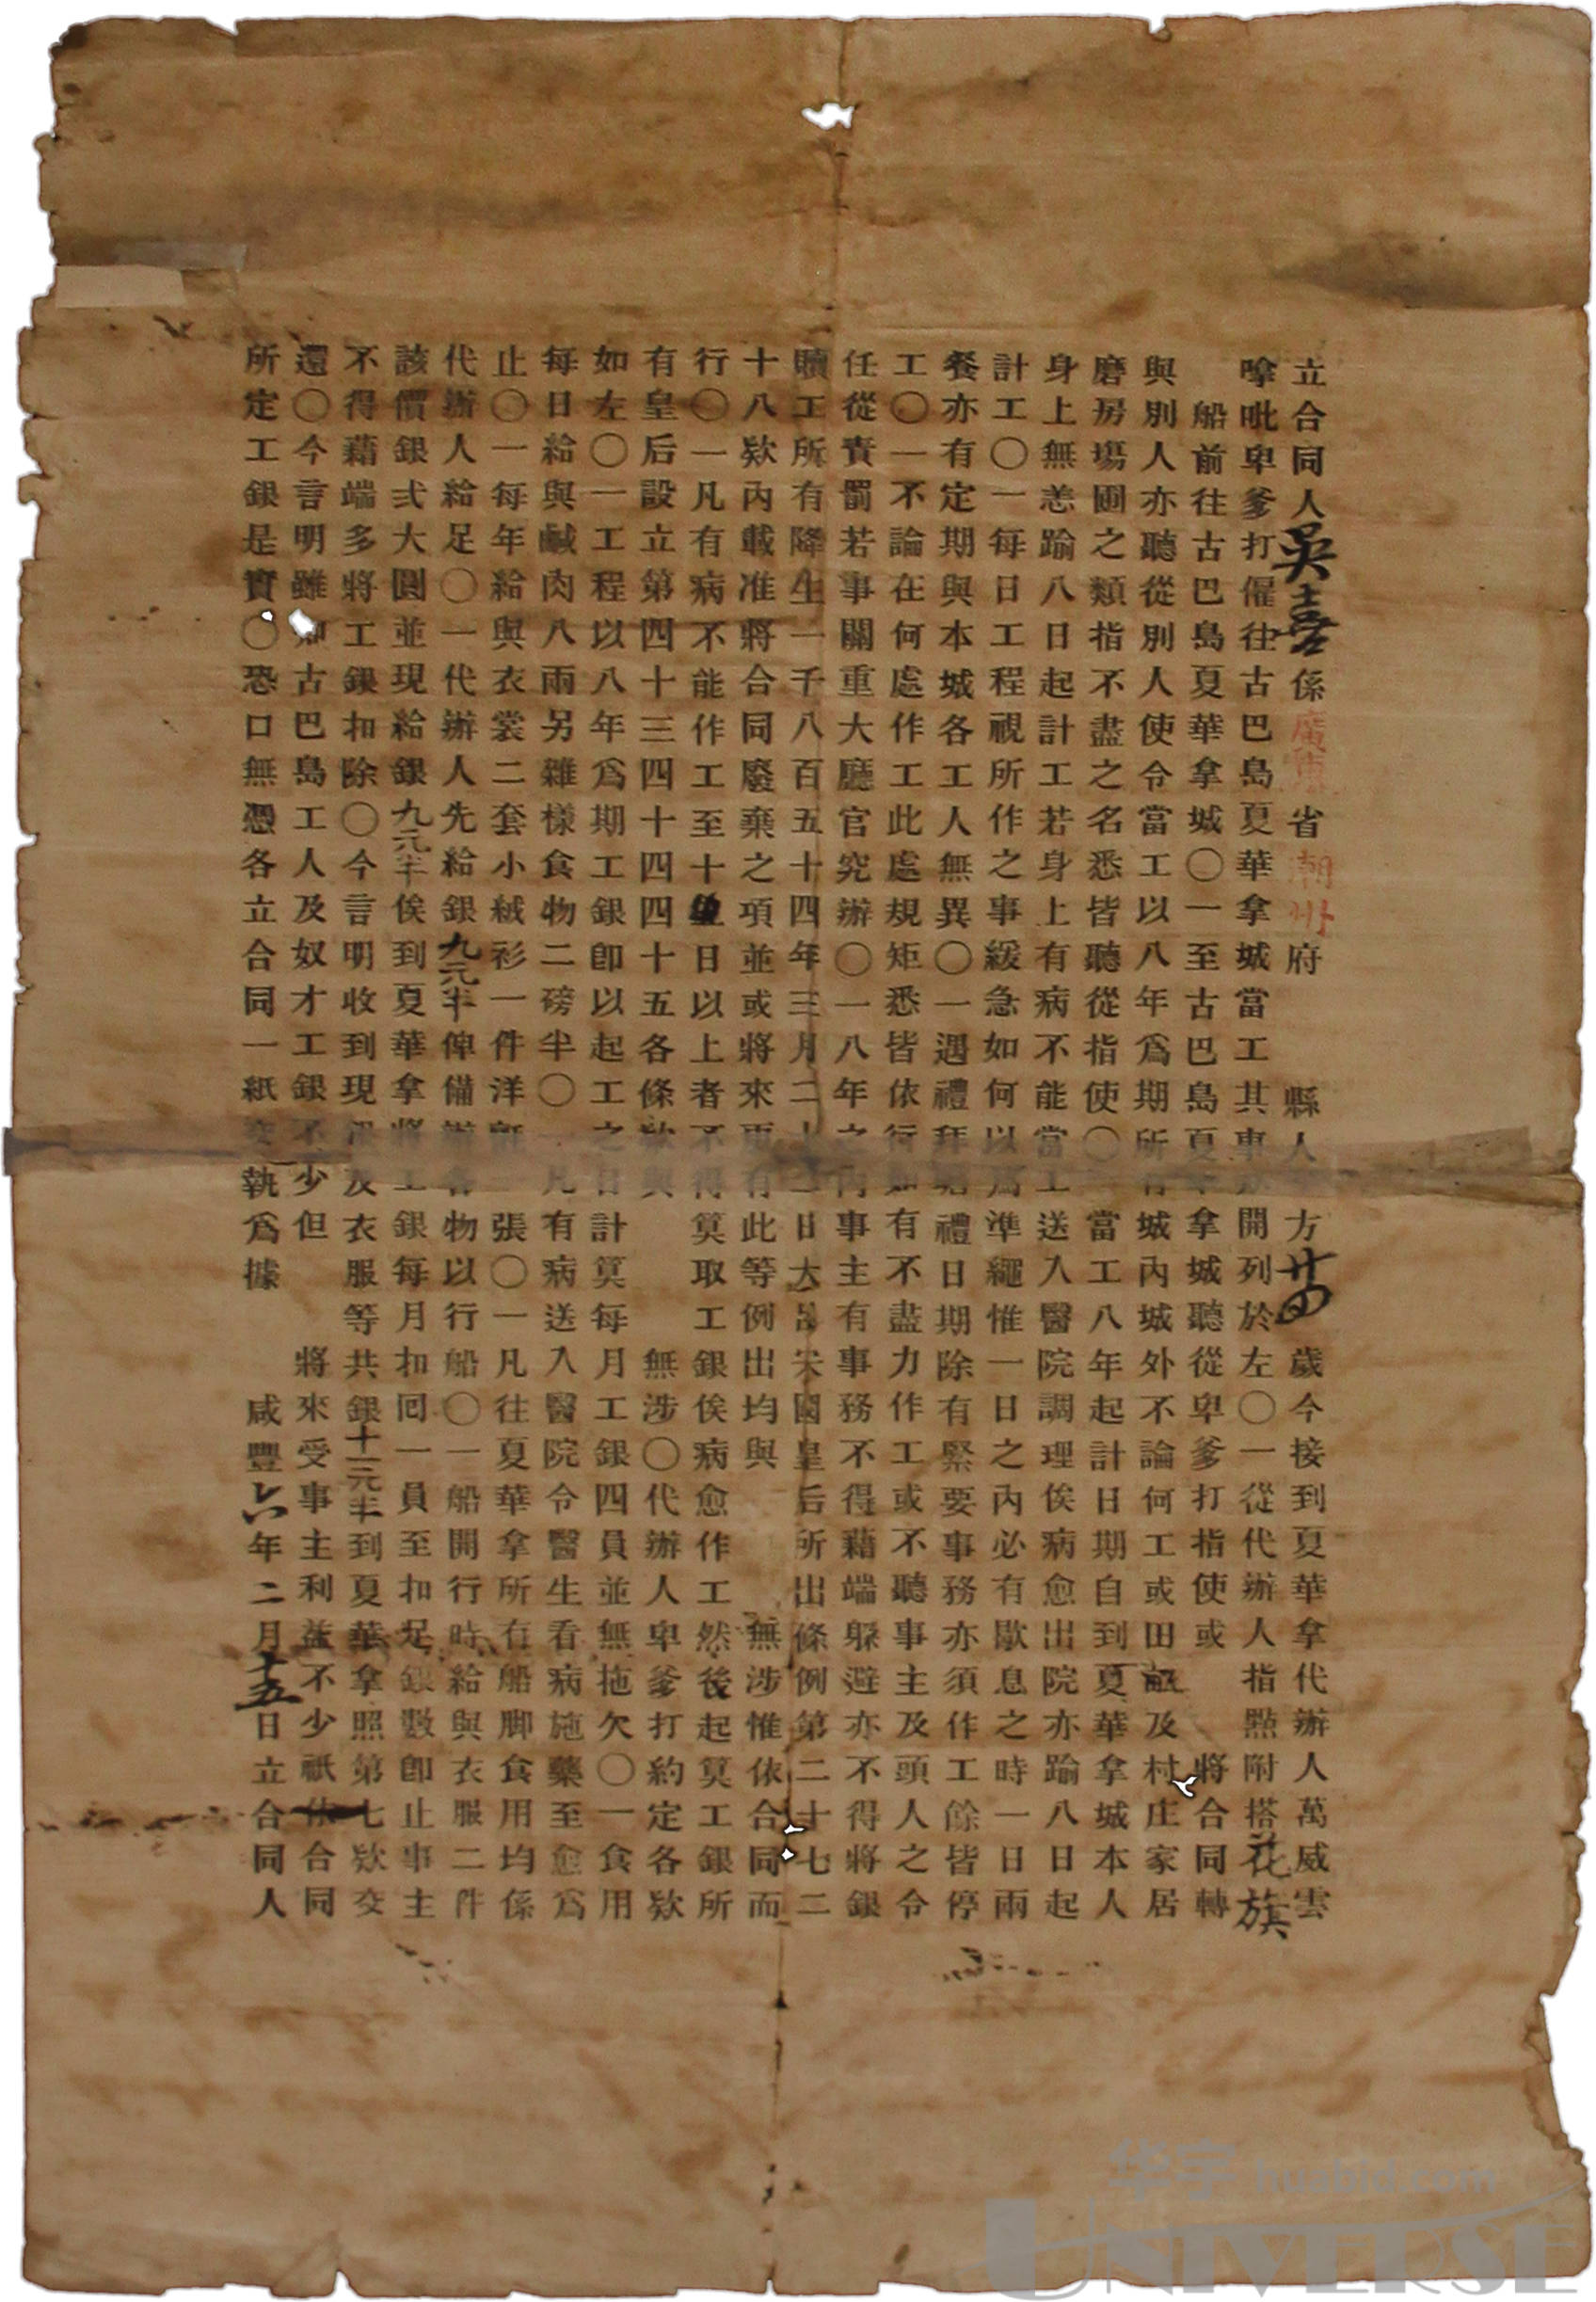 立合同人吳喜係廣東省潮州府 縣人 方廿四歲今接到夏華拿代辦人萬威雲
嗱吡卑爹打僱往古巴島夏華拿城當工其事 開列於左〇一從代辦人指點附搭花旗
船前往古巴島夏華拿城〇一至古巴島夏 拿城聽從卑爹打指使或 將合同轉
與別人亦聽從別人使令當工以八年爲期所有城內城外不論何工或田 及村庄家居
磨房塲圃之類指不盡之名悉皆聽從指使〇 當工八年起計日期自到夏華拿城本人
身上無恙踰八日起計工若身上有病不能當工送入醫院調理俟病愈出院亦踰八日起
計工〇一每日工程視所作之事緩急如何以爲準繩惟一日之內必有歇息之時一日兩
餐亦有定期與本城各工人無異〇一遇禮拜 禮日期除有緊要事務亦須作工餘皆停
工〇一不論在何處作工此處規矩悉皆依行如有不盡力作工或不聽事主及頭人之令
任從責罰若事關重大廳官究辦〇一八年之內事主有事務不得藉端躲避亦不得將銀
贖工所有降生一千八百五十四年三月二十二日大呂宋國皇后所出條例第二十七二
十八欵內載准將合同廢棄之項並或將來更有此等例出均與 無涉惟依合同而
行〇一凡有病不能作工至十 日以上者不得筭取工銀俟病愈作工然後起筭工銀所
有皇后設立第四十三四十四四十五各條欵與 無涉〇代辦人卑爹打約定各欵
如左〇一工程以八年爲期工銀卽以起工之日計筭每月工銀四員並無拖欠〇一食用
每日給與鹹肉八兩另雜樣食物二磅半〇一凡有病送入醫院令醫生看病施藥至愈爲
止〇一每年給與衣裳二套小絨衫一件洋氈一張〇一凡往夏華拿所有船脚食用均係
代辦人給足〇一代辦人先給銀九元半俾備辦各物以行船〇一船開行時給與衣服二件
該價銀弍大圓並現給銀九元半俟到夏華拿將工銀每月扣囘一員至扣足銀數卽止事主
不得藉端多將工銀扣除〇今言明收到現銀及衣服等共銀十一元半到夏華拿照第七欵交
還〇今言明雖知古巴島工人及奴才工銀不少但 將來受事主利益不少祇依合同
所定工銀是實〇恐口無憑各立合同一紙交執爲據 咸豐六年二月十五日立合同人
华宇 huabid.com
UNIVERSE